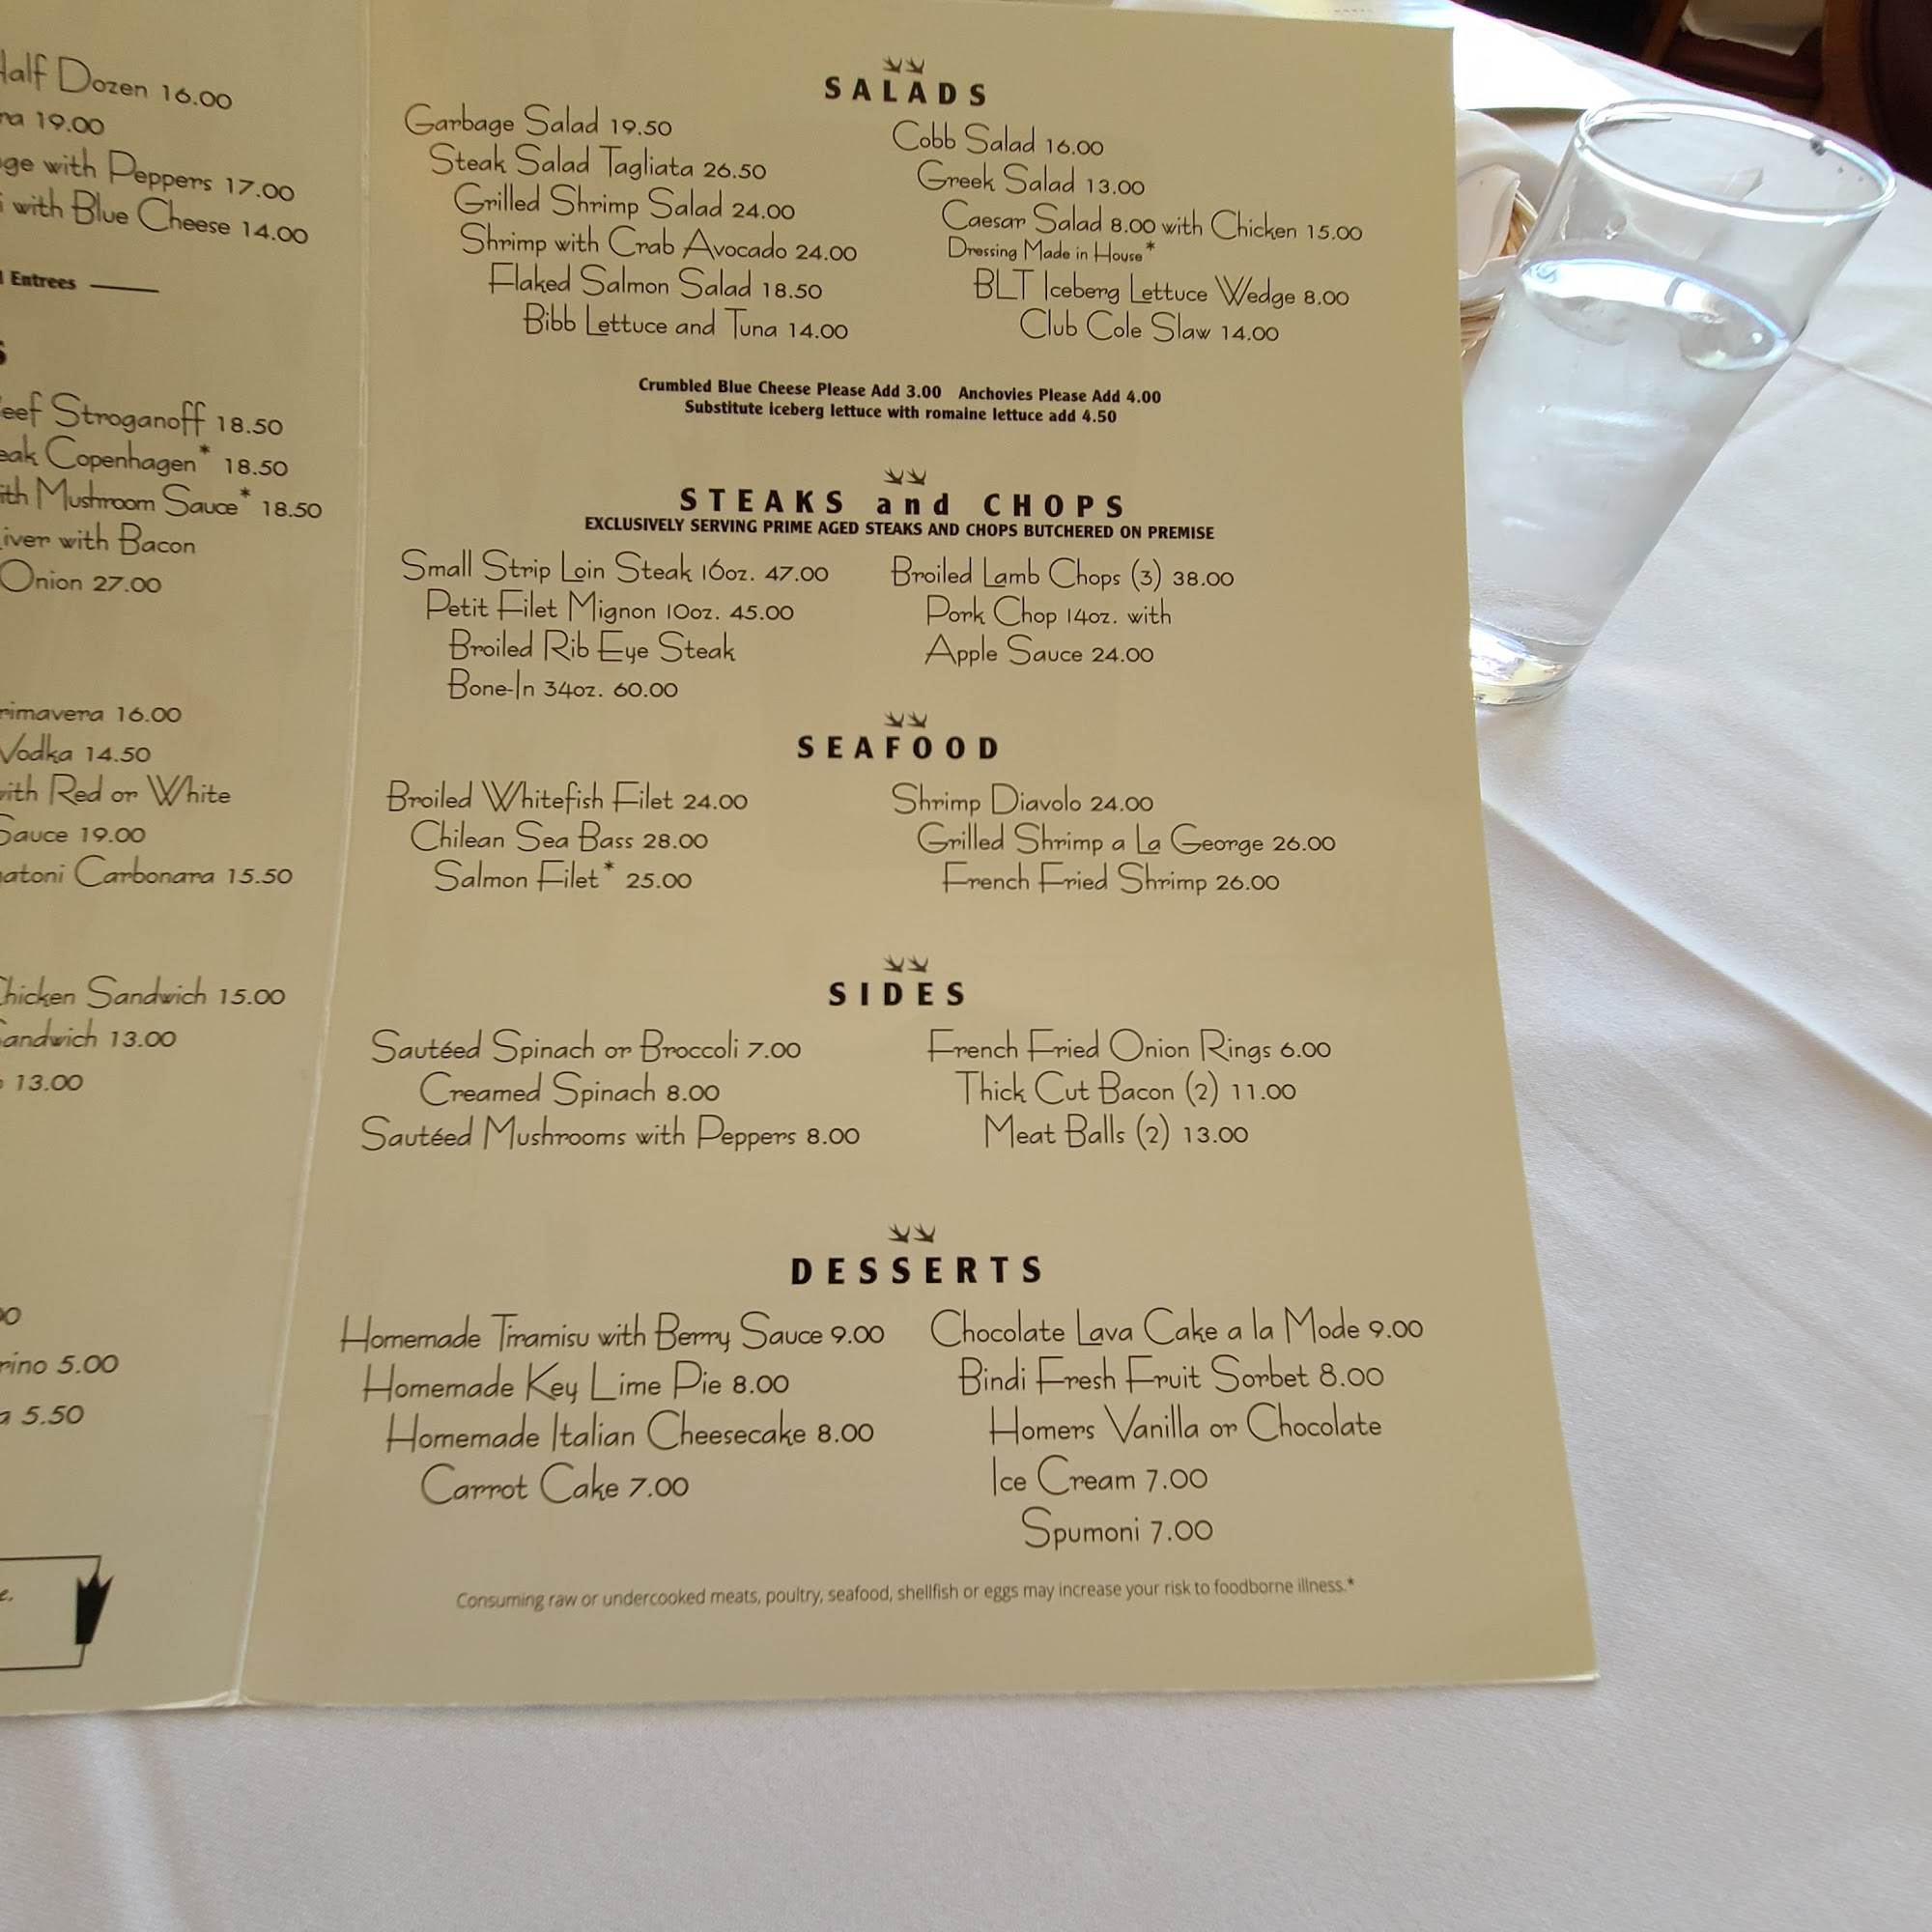 Half Dozen 16.00
19.00
with Peppers 17.00
with Blue Cheese 14.00
Entrees
Stroganoff 18.50
Copenhagen* 18.50
Mushroom Sauce* 18.50
with Bacon
Onion 27.00
16.00
Vodka 14.50
with Red or White
Sauce 19.00
Carbonara 15.50
Chicken Sandwich 15.00
Sandwich 13.00
13.00
5.00
5.50
SALADS
Garbage Salad 19.50
Steak Salad Tagliata 26.50
Grilled Shrimp Salad 24.00
Shrimp with Crab Avocado 24.00
Flaked Salmon Salad 18.50
Bibb Lettuce and Tuna 14.00
Cobb Salad 16.00
Greek Salad 13.00
Caesar Salad 8.00 with Chicken 15.00
Dressing Made in House*
BLT Iceberg Lettuce Wedge 8.00
Club Cole Slaw 14.00
Crumbled Blue Cheese Please Add 3.00 Anchovies Please Add 4.00
Substitute iceberg lettuce with romaine lettuce add 4.50
STEAKS and CHOPS
EXCLUSIVELY SERVING PRIME AGED STEAKS AND CHOPS BUTCHERED ON PREMISE
Small Strip Loin Steak 16oz. 47.00
Petit Filet Mignon 10oz. 45.00
Broiled Rib Eye Steak
Bone-In 34oz. 60.00
Broiled Lamb Chops (3) 38.00
Pork Chop 14oz. with
Apple Sauce 24.00
SEAFOOD
Broiled Whitefish Filet 24.00
Chilean Sea Bass 28.00
Salmon Filet* 25.00
Shrimp Diavolo 24.00
Grilled Shrimp a La George 26.00
French Fried Shrimp 26.00
SIDES
Sautéed Spinach or Broccoli 7.00
Creamed Spinach 8.00
Sautéed Mushrooms with Peppers 8.00
French Fried Onion Rings 6.00
Thick Cut Bacon (2) 11.00
Meat Balls (2) 13.00
DESSERTS
Homemade Tiramisu with Berry Sauce 9.00
Homemade Key Lime Pie 8.00
Homemade Italian Cheesecake 8.00
Carrot Cake 7.00
Chocolate Lava Cake a la Mode 9.00
Bindi Fresh Fruit Sorbet 8.00
Homers Vanilla or Chocolate
Ice Cream 7.00
Spumoni 7.00
Consuming raw or undercooked meats, poultry, seafood, shellfish or eggs may increase your risk to foodborne illness.*